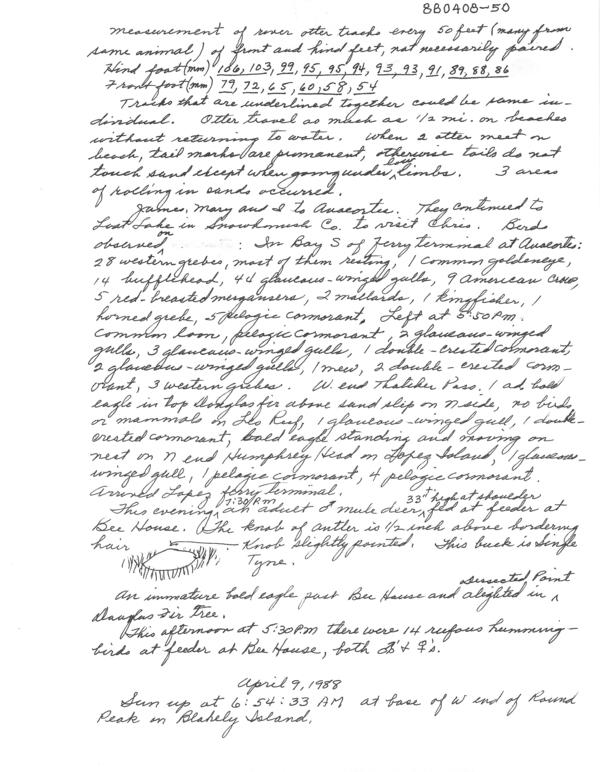 880408-50
measurement of river otter tracks every 50 feet (many from
same animal) of front and hind feet, not necessarily paired.
Hind foot (mm) 106, 103, 99, 95, 95, 94, 93, 93, 91, 89, 88, 86
Front foot (mm) 79, 72, 65, 60, 58, 54
Tracks that are underlined together could be same in-
dividual. Otter travel as much as 1/2 mi. on beaches
without returning to water. When 2 otter meet on
beach, tail marks are prominent, otherwise tails do not
touch sand except when going under low limbs. 3 areas
of rolling in sands occurred.
James, Mary and I to Anacortes. They continued to
Lost Lake in Snowhomish Co. to visit Chris. Birds
observed on : In Bay S of ferry terminal at Anacortes:
28 western grebes, most of them resting, 1 common goldeneye,
14 bufflehead, 44 glaucous-winged gulls, 9 American crows,
5 red-breasted mergansers, 2 mallards, 1 kingfisher, 1
horned grebe, 5 pelagic cormorant. Left at 5:50 P.M.
common loon, pelagic cormorant, 2 glaucous-winged
gulls, 3 glaucous-winged gulls, 1 double-crested cormorant,
2 glaucous-winged gulls, 1 mew, 2 double-crested corm-
orant, 3 western grebes. W. end Thatcher Pass. 1 ad. bald
eagle in top Douglas fir above sand slip on N side, no birds
or mammals on Leo Reef, 1 glaucous-winged gull, 1 double-
crested cormorant, bald eagle standing and moving on
nest on N end Humphrey Head on Lopez Island, 1 glaucous-
winged gull, 1 pelagic cormorant, 4 pelagic cormorant.
Arrived Lopez ferry terminal.
This evening 7:30 P.M. an adult ♂ mule deer 33" high at shoulder fed at feeder at
Bee House. The knob of antler is 1/2 inch above bordering
hair Knob slightly pointed. This buck is single
Tyne.
An immature bald eagle past Bee House and alighted in Dissected Point
Douglas Fir Tree.
This afternoon at 5:30 PM there were 14 rufous humming-
birds at feeder at Bee House, both ♂'s & ♀'s.
April 9, 1988
Sun up at 6:54:33 AM at base of W end of Round
Peak on Blakely Island.